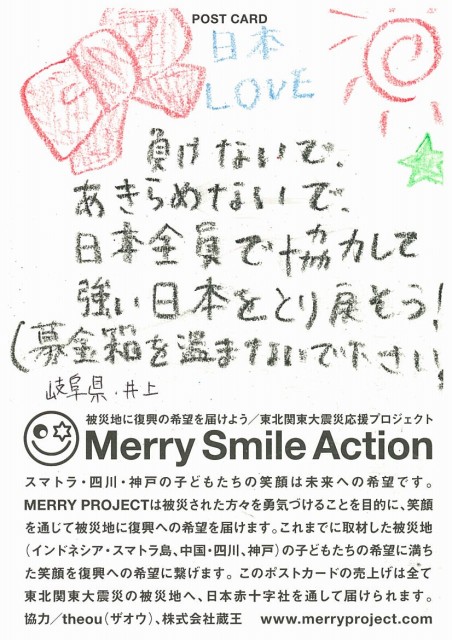 POST CARD
日本
LOVE
負けないで、
あきらめないで、
日本全員で協力して
強い日本をとり戻そう!
(募金箱を盗まないで下さい!
岐阜県・井上
被災地に復興の希望を届けよう/東北関東大震災応援プロジェクト
Merry Smile Action
スマトラ・四川・神戸の子どもたちの笑顔は未来への希望です。
MERRY PROJECTは被災された方々を勇気づけることを目的に、笑顔
を通じて被災地に復興への希望を届けます。これまでに取材した被災地
(インドネシア・スマトラ島、中国・四川、神戸)の子どもたちの希望に満ち
た笑顔を復興への希望に繋げます。このポストカードの売上げは全て
東北関東大震災の被災地へ、日本赤十字社を通して届けられます。
協力/theou(ザオウ)、株式会社蔵王 www.merryproject.com